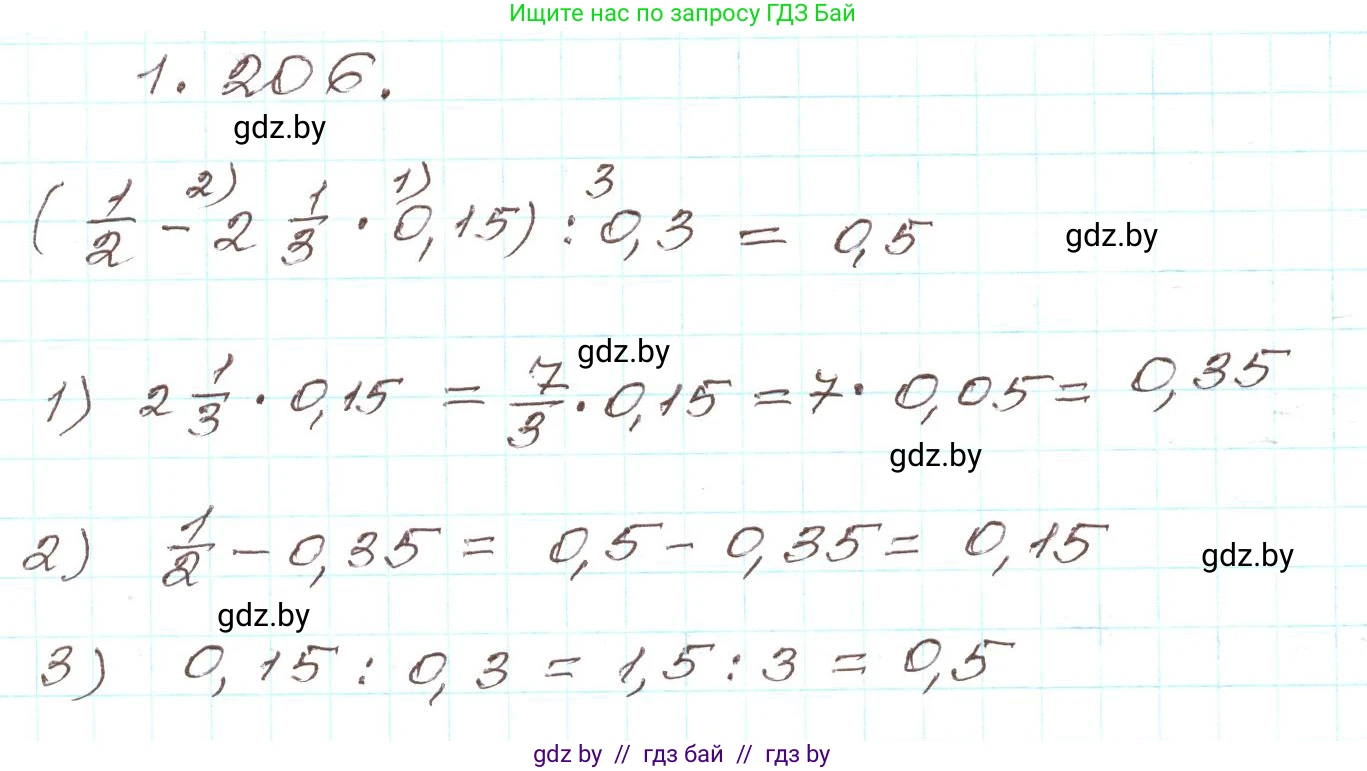 Ищите нас по запросу ГДЗ Бай
1. 206.
gdz.by
2) 1) 3
( 1/2 - 2 1/3 · 0,15) : 0,3 = 0,5
gdz.by
gdz.by
1) 2 1/3 · 0,15 = 7/3 · 0,15 = 7 · 0,05 = 0,35
gdz.by
2) 1/2 - 0,35 = 0,5 - 0,35 = 0,15
gdz.by
gdz.by
3) 0,15 : 0,3 = 1,5 : 3 = 0,5
gdz by // гдз бай // гдз by